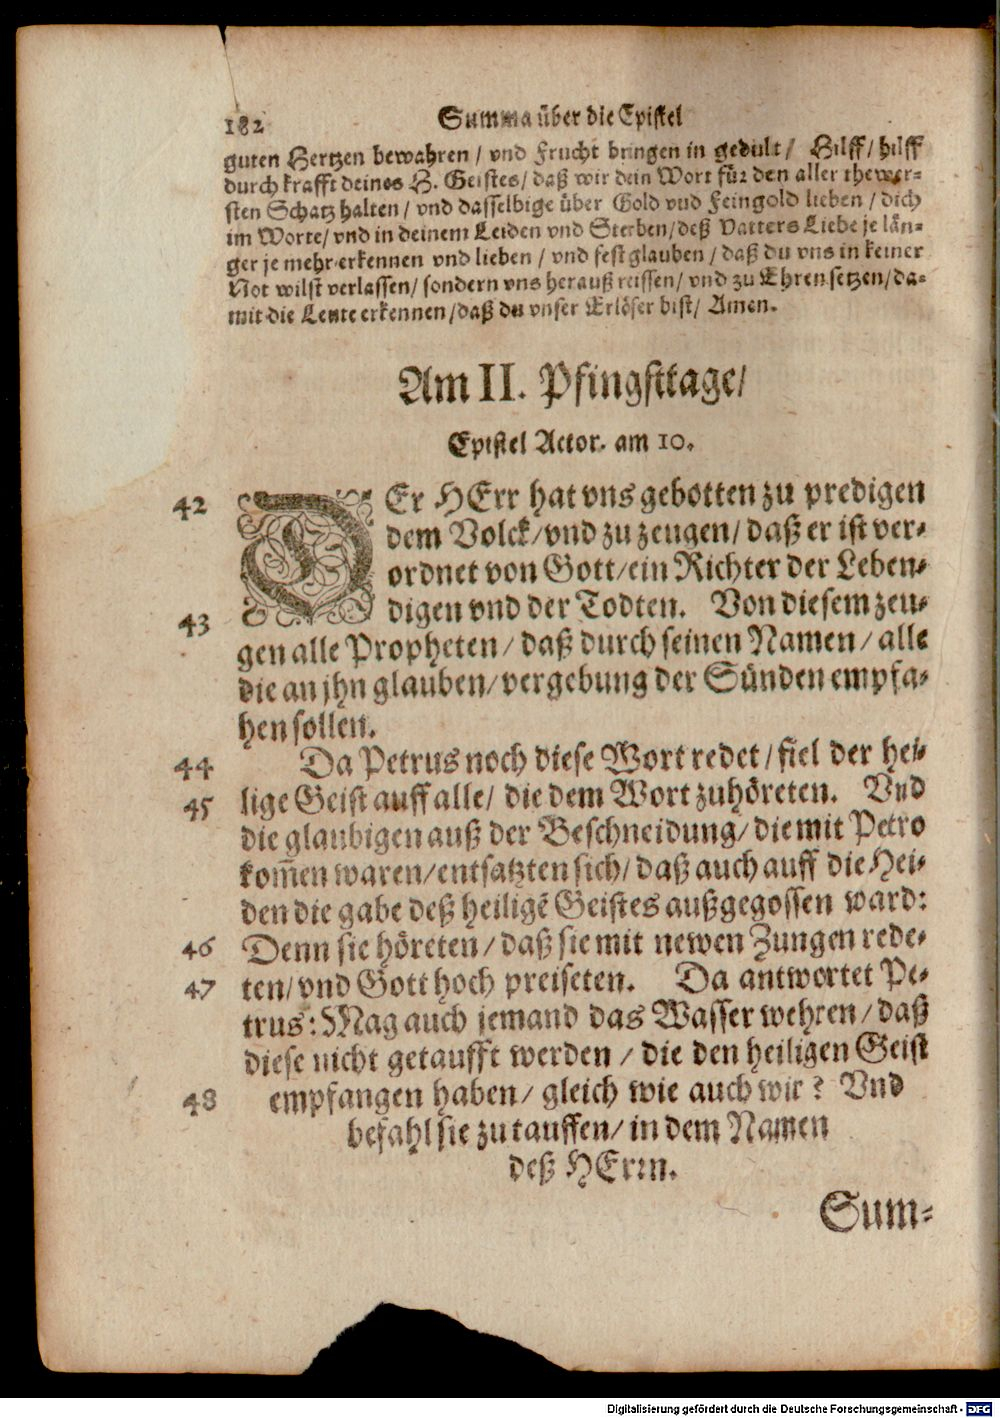 182 Summa über die Epistel
guten Hertzen bewahren / vnd Frucht bringen in gedult / Hilff / hilff
durch krafft deines H. Geistes / daß wir dein Wort für den aller thewer-
sten Schatz halten / vnd dasselbige über Gold vnd Feingold lieben / dich
im Worte / vnd in deinem Leiden vnd Sterben / deß Vatters Liebe je län-
ger je mehr erkennen vnd lieben / vnd fest glauben / daß du vns in keiner
Not wilst verlassen / sondern vns herauß reissen / vnd zu Ehren setzen / da-
mit die Leute erkennen / daß du vnser Erlöser bist / Amen.
Am II. Pfingsttage /
Epistel Actor. am 10.
42 DEr HErr hat vns gebotten zu predigen
dem Volck / vnd zu zeugen / daß er ist ver-
ordnet von Gott / ein Richter der Leben-
43 digen vnd der Todten. Von diesem zeu-
gen alle Propheten / daß durch seinen Namen / alle
die an jhn glauben / vergebung der Sünden empfa-
hen sollen.
44 Da Petrus noch diese Wort redet / fiel der hei-
45 lige Geist auff alle / die dem Wort zuhöreten. Vnd
die glaubigen auß der Beschneidung / die mit Petro
kom̄en waren / entsatzten sich / daß auch auff die Hei-
den die gabe deß heiligẽ Geistes außgegossen ward:
46 Denn sie höreten / daß sie mit newen Zungen rede-
47 ten / vnd Gott hoch preiseten. Da antwortet Pe-
trus: Mag auch jemand das Wasser wehren / daß
diese nicht getaufft werden / die den heiligen Geist
48 empfangen haben / gleich wie auch wir? Vnd
befahl sie zu tauffen / in dem Namen
deß HErrn.
Sum-
Digitalisierung gefördert durch die Deutsche Forschungsgemeinschaft - DFG